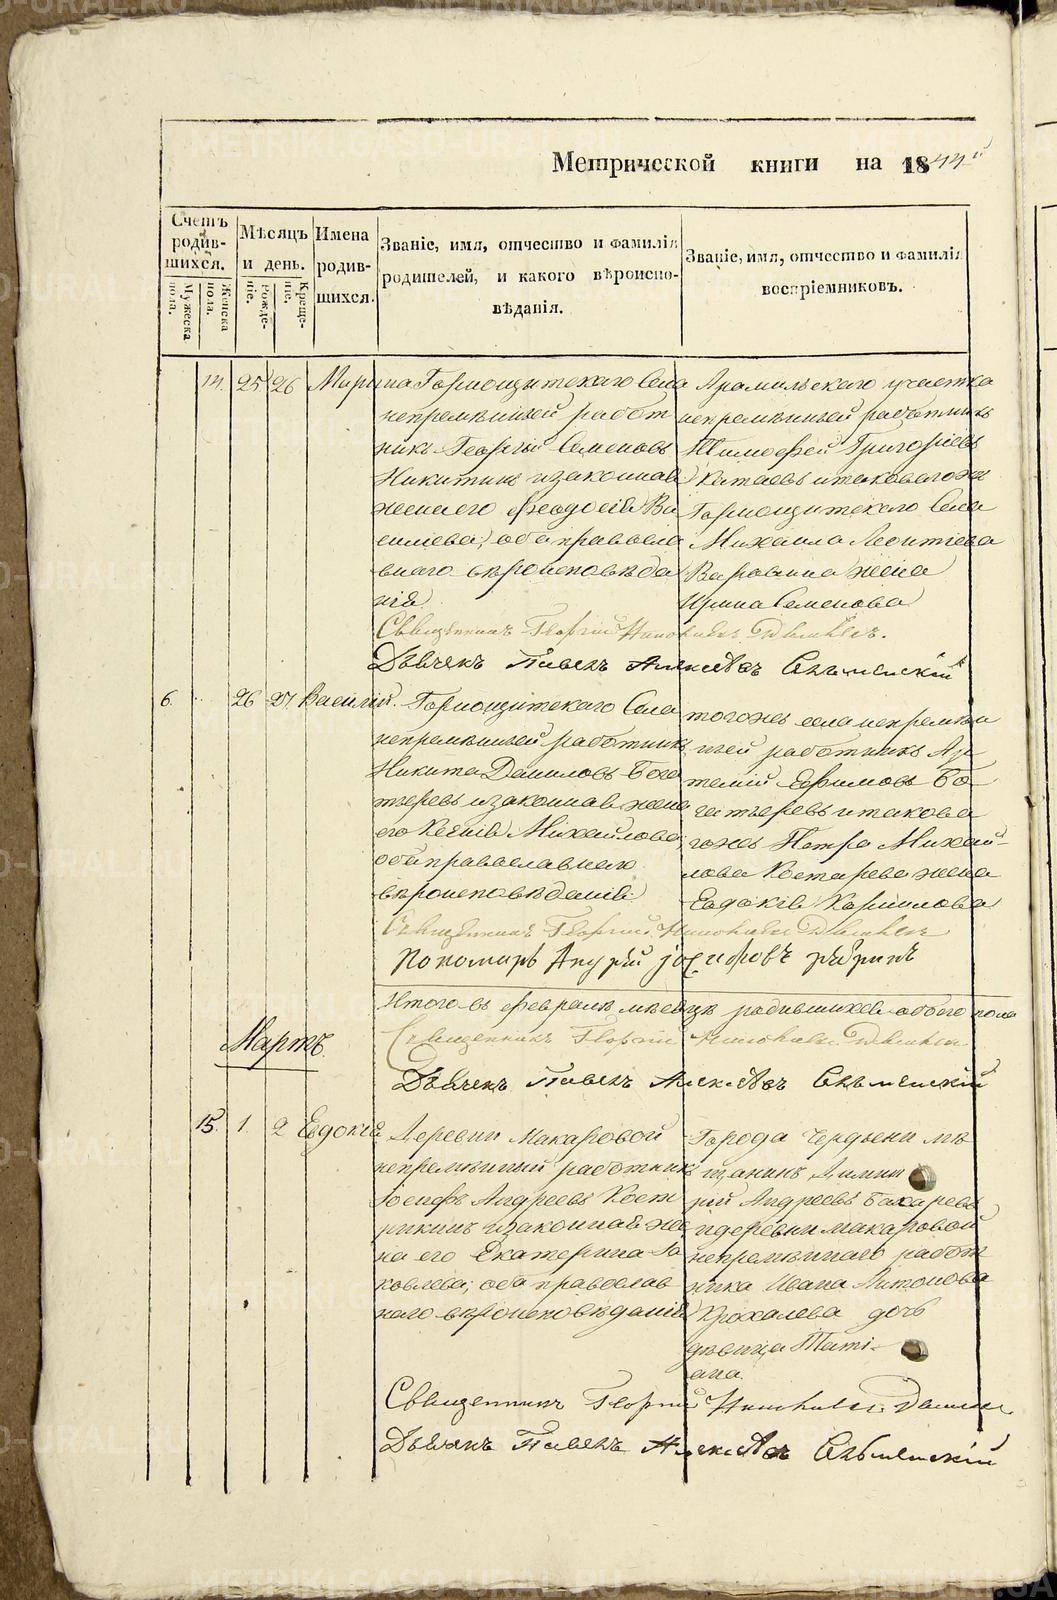 Метрической книги на 1844й
Счетъ родив-шихся.
Мужеска пола.
Женска пола.
Мѣсяцъ и день.
Рожде-ніе.
Креще-ніе.
Имена родив-шихся.
Званіе, имя, отчество и фамилія
родителей, и какого вѣроиспо-
вѣданія.
Званіе, имя, отчество и фамилія
воспріемниковъ.
14. 25 26 Марина
Горнощитскаго Села
непремѣнный работ
никъ Георгій Семеновъ
Никитинъ и законная
жена его Феодосія Ва
силіева, оба православ
внаго вѣроисповѣда
нія
Арамильскаго участка
непремѣнный работникъ
Тимофей Григоріевъ
Китаевъ и таковаго же
Горнощитскаго Села
Михаила Леонтіева
жена
Ирина Семенова
Священникъ Георгій
Дьячекъ Павелъ Алексѣевъ
6. 26 27 Василій.
Горнощитскаго Села
непремѣнный работникъ
Никита Даниловъ Бога
тыревъ и законная жена
его Ксенія Михайлова,
оба православнаго
вѣроисповѣданія
тогоже села непремѣн
ный работникъ Ар
темій Ефимовъ Бо
гатыревъ и такова
гожъ Петра Михай-
лова Костарева жена
Евдокія
Священникъ Георгій
Пономарь Андрей Іосифовъ
Итого въ февралѣ мѣсяцѣ родившихся обоего пола
Священникъ Георгій
Дьячекъ Павелъ Алексѣевъ
Мартъ
15. 1. 2 Евдокія
Деревни Макаровой
непремѣнный работникъ
Іосифъ Андреевъ Кост
рикинъ и законная же
на его Екатерина Іа
ковлева, оба православ
наго вѣроисповѣданія
Города Чердыни мѣ
щанинъ Димит
рій Андреевъ
и деревни Макаровой
непремѣннаго работ
ника Ивана Антонова
Крохалева дочь
дѣвица Таті-
ана.
Священникъ Георгій
Дьячекъ Павелъ Алексѣевъ